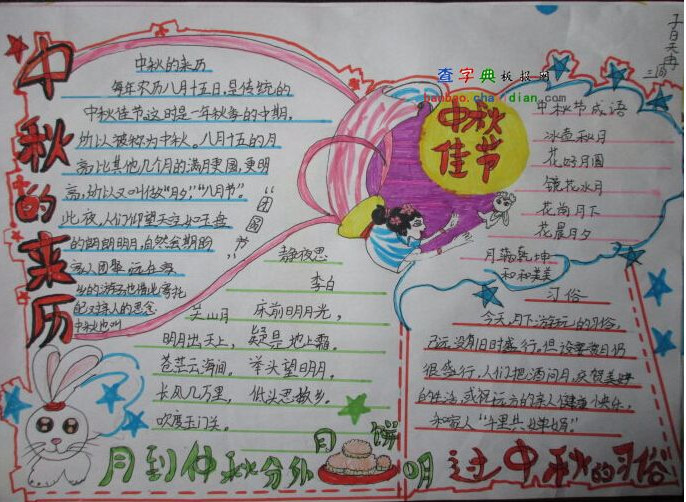 中秋的来历
中秋的来历
每年农历八月十五日,是传统的
中秋佳节这时是一年秋季的中期,
所以被称为中秋。八月十五的月
亮比其他几个月的满月更圆,更明
亮,所以又叫做“月夕”,“八月节”。
此夜,人们仰望天空如玉盘
的朗朗明月,自然会期盼
家人团聚 远在
的游子也借此寄托
的思念
中秋也叫
“团圆节”
查字典板报网
中秋
佳节
中秋节成语
冰壶秋月
花好月圆
镜花水月
花前月下
花晨月夕
月满乾坤
和和美美
静夜思
李白
床前明月光,
疑是地上霜。
举头望明月,
低头思故乡。
关山月
明月出天山,
苍茫云海间。
长风几万里,
吹度玉门关。
习俗
今天,月下游玩的习俗,
已远没有旧时盛行。但设宴赏月仍
很盛行,人们把酒问月,庆贺美好
的生活,或祝远方的亲人健康快乐,
和家人“千里共婵娟”。
月到仲秋分外明
月 饼
过中秋的习俗